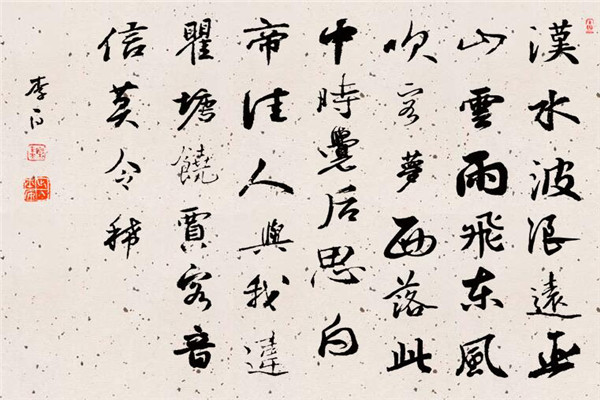 漢水波浪遠巫
山雲雨飛东風
吹客夢西落此
中時覺后思白
帝佳人與我違
瞿塘饒賈客音
信莫令稀
李白